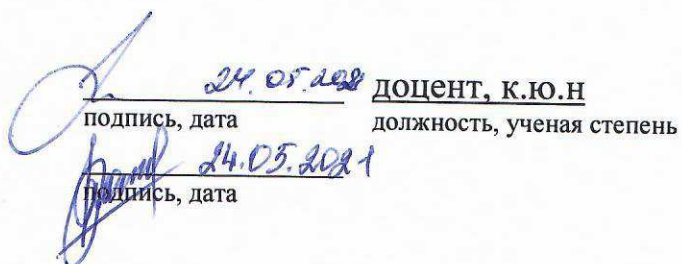 24.05.2021 доцент, к.ю.н
подпись, дата должность, ученая степень
24.05.2021
подпись, дата